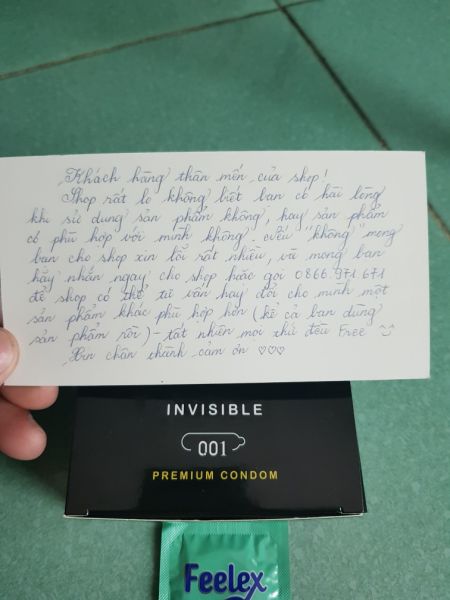 Khách hàng thân mến của shop!
Shop rất lo không biết bạn có hài lòng
khi sử dụng sản phẩm không, hay sản phẩm
có phù hợp với mình không. Nếu "không" mong
bạn cho shop xin lỗi rất nhiều, và mong bạn
hãy nhắn ngay cho shop hoặc gọi 0866.971.671
để shop có thể tư vấn hay đổi cho mình một
sản phẩm khác phù hợp hơn (kể cả bạn dùng
sản phẩm rồi) - tất nhiên mọi thứ đều Free
Xin chân thành cảm ơn ♡♡♡
INVISIBLE
001
PREMIUM CONDOM
Feelex